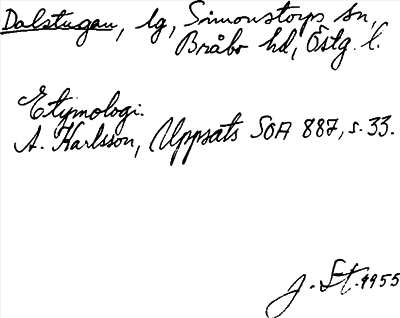 Dalstugan, lg, Simonstorps sn,
Bråbo hd, Östg. l.
Etymologi.
A. Karlsson, Uppsats SOA 887, s. 33.
J. St. 1955